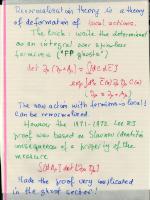 Renormalization theory is a theory
of deformation of local actions.
The trick: write the determinant
as an integral over spinless
fermions ("FP ghosts")
det ∂μ(∂μ+Aμ) = ∫(dc dc̄)
exp ∫dx c̄(x) ∂μ ∇μ c(x)
(∇μ = ∂μ + Aμ)
The new action with fermions - local!
Can be renormalized.
However the 1971-1972 Lee &
proof was based on Slavnov identities
consequences of a property of the
measure
∫(dAμ) det(∂μ ∇μ)
Made the proof very complicated
in the ghost sector!